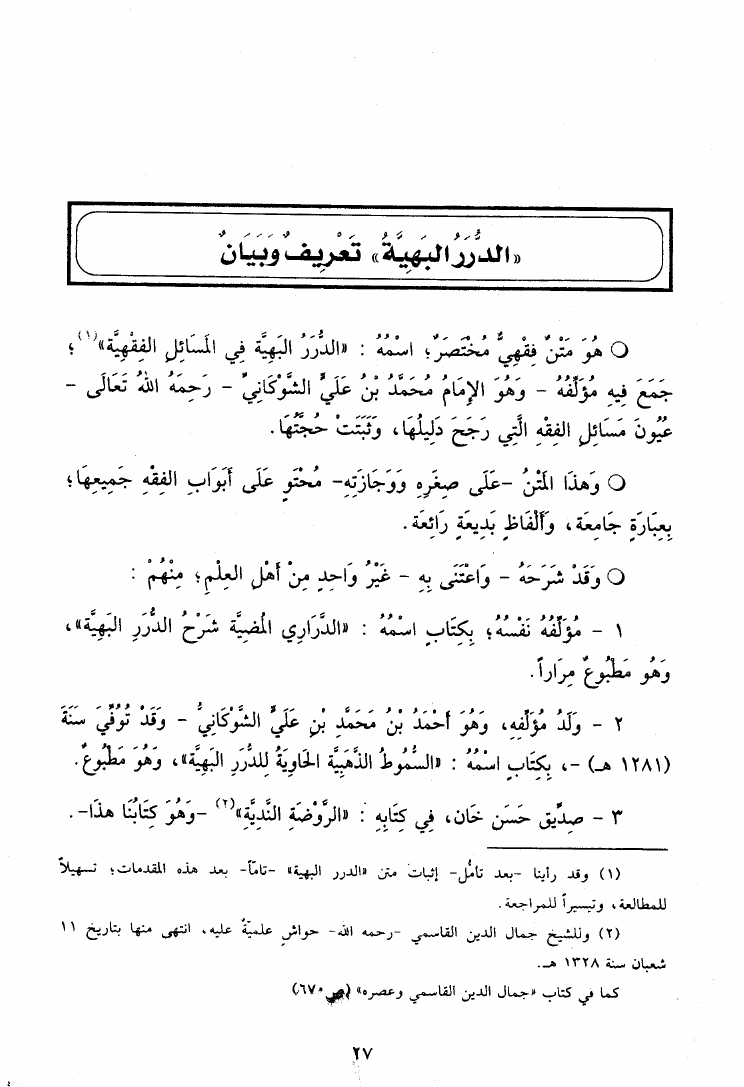 «الدُّرَرُ البَهِيَّةُ» تَعْرِيفٌ وَبَيَانٌ
○ هُوَ مَتْنٌ فِقْهِيٌّ مُخْتَصَرٌ؛ اسْمُهُ : «الدُّرَرُ البَهِيَّة فِي المَسَائِلِ الفِقْهِيَّة»(١)؛
جَمَعَ فِيهِ مُؤَلِّفُهُ - وَهُوَ الإِمَامُ مُحَمَّدُ بْنُ عَلِيٍّ الشَّوْكَانِيِّ - رَحِمَهُ اللهُ تَعَالَى -
عُيُونَ مَسَائِلِ الفِقْهِ الَّتِي رَجَحَ دَلِيلُهَا، وَثَبَتَتْ حُجَّتُهَا.
○ وَهَذَا المَتْنُ -عَلَى صِغَرِهِ وَوَجَازَتِهِ- مُحْتَوٍ عَلَى أَبْوَابِ الفِقْهِ جَمِيعِهَا؛
بِعِبَارَةٍ جَامِعَة، وَأَلْفَاظٍ بَدِيعَةٍ رَائِعَة.
○ وَقَدْ شَرَحَهُ - وَاعْتَنَى بِهِ - غَيْرُ وَاحِدٍ مِنْ أَهْلِ العِلْمِ؛ مِنْهُمْ :
١ - مُؤَلِّفُهُ نَفْسُهُ؛ بِكِتَابٍ اسْمُهُ : «الدَّرَارِي المُضِيَّة شَرْحُ الدُّرَرِ البَهِيَّة»،
وَهُو مَطْبُوعٌ مِرَاراً.
٢ - وَلَدُ مُؤَلِّفِهِ، وَهُوَ أَحْمَدُ بْنُ مُحَمَّدِ بْنِ عَلِيٍّ الشَّوْكَانِيُّ - وَقَدْ تُوُفِّيَ سَنَةَ
(١٢٨١ هـ) -، بِكِتَابٍ اسْمُهُ : «السُّمُوطُ الذَّهَبِيَّة الحَاوِيَةُ لِلدُّرَرِ البَهِيَّة»، وَهُوَ مَطْبُوعٌ.
٣ - صِدِّيق حَسَن خَان، فِي كِتَابِهِ : «الرَّوْضَةِ النَّدِيَّةِ»(٢) -وَهُوَ كِتَابُنَا هذَا-.
(١) وقد رأينا -بعد تأمُّل- إثبات متن «الدرر البهية» -تامّاً- بعد هذه المقدمات؛ تسهيلاً
للمطالعة، وتيسيراً للمراجعة.
(٢) وللشيخ جمال الدين القاسمي -رحمه الله- حواشٍ علميَّةٌ عليه، انتهى منها بتاريخ ١١
شعبان سنة ١٣٢٨ هـ.
كما في كتاب «جمال الدين القاسمي وعصره» (ص٦٧٠)
٢٧